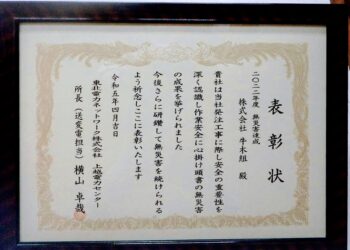 表彰状
二〇二二年度 無災害達成
株式会社 牛木組 殿
貴社は当社発注工事に際し安全の重要性を
深く認識し作業安全に心掛け頭書の無災害
の成果を挙げられました
今後さらに研鑽して無災害を続けられる
よう祈念しここに表彰いたします
令和五年四月吉日
東北電力ネットワーク株式会社 上越電力センター
所長(送変電担当) 横山 卓哉